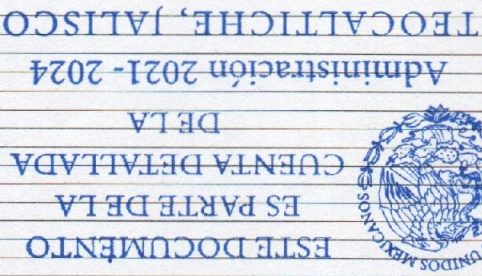 ESTE DOCUMENTO
ES PARTE DE LA
CUENTA DETALLADA
DE LA
Administración 2021 - 2024
TEOCALTICHE, JALISCO
UNIDOS MEXICANOS